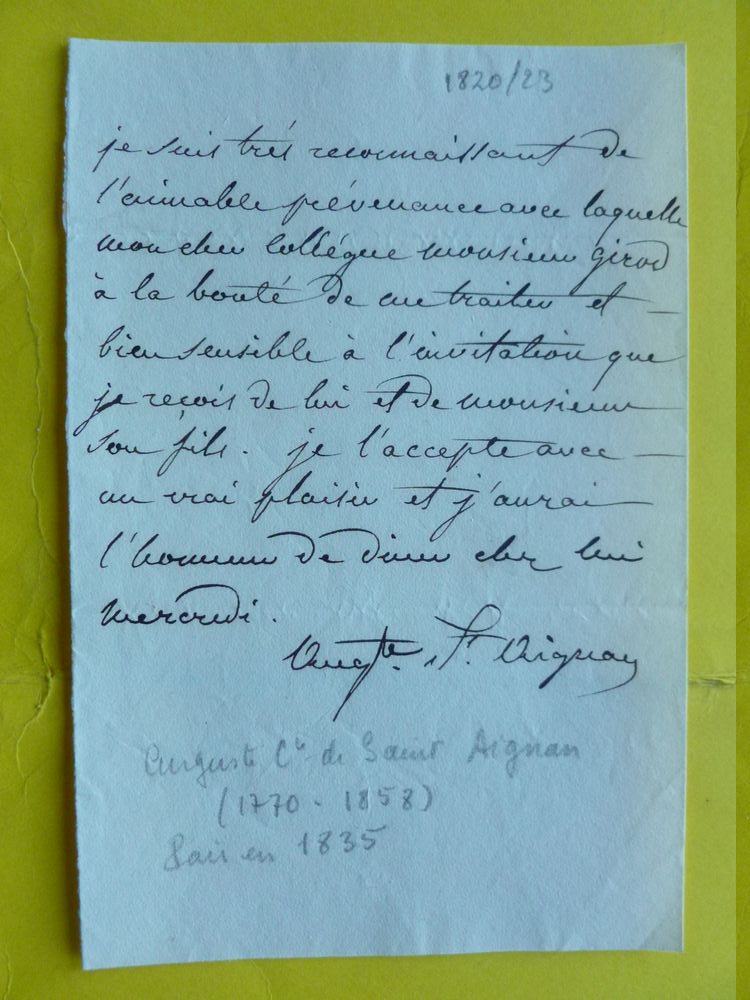 1820/23
je suis trés reconnaissant de
l'aimable prévenance avec laquelle
mon cher collégue monsieur Girod
à la bonté de me traiter et
bien sensible à l'invitation que
je reçois de lui et de monsieur
son fils. je l'accepte avec
un vrai plaisir et j'aurai
l'honneur de diner chez lui
mercredi.
Augte. St. Aignan
Auguste Cte de Saint Aignan
(1770 - 1858)
Pair en 1835